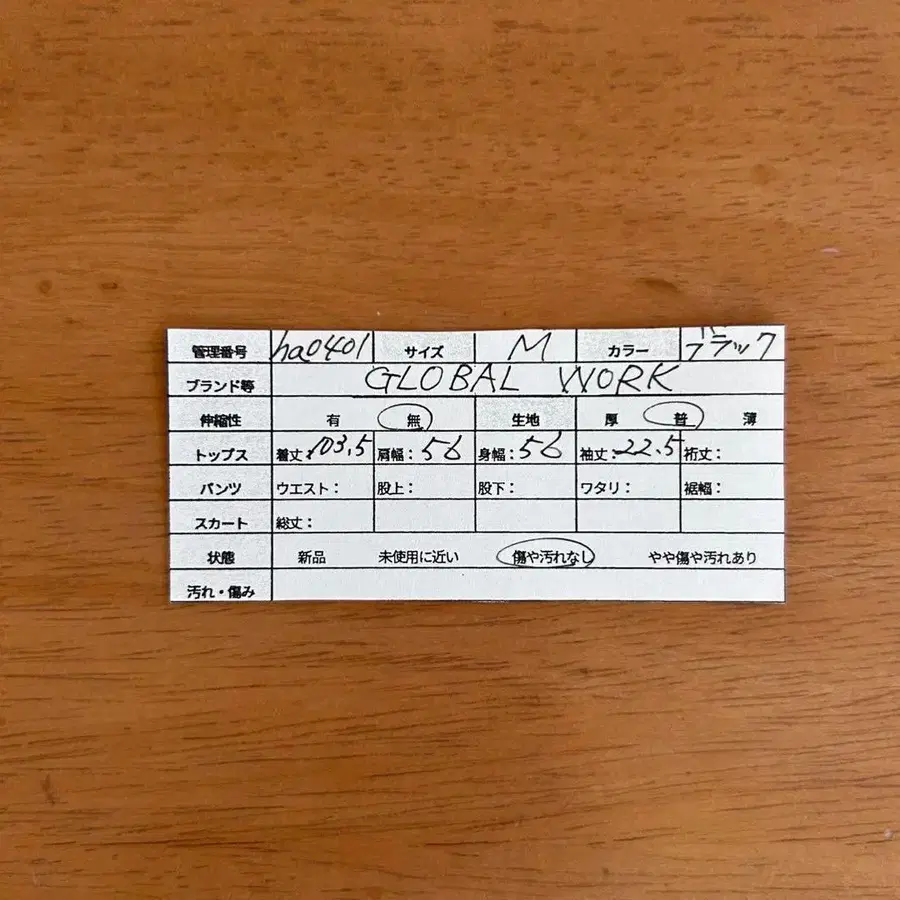 管理番号 ha0401 サイズ M カラー ブラック
ブランド等 GLOBAL WORK
伸縮性 有 無 生地 厚 普 薄
トップス 着丈:103.5 肩幅:56 身幅:56 袖丈:22.5 裄丈:
パンツ ウエスト: 股上: 股下: ワタリ: 裾幅:
スカート 総丈:
状態 新品 未使用に近い 傷や汚れなし やや傷や汚れあり
汚れ・傷み